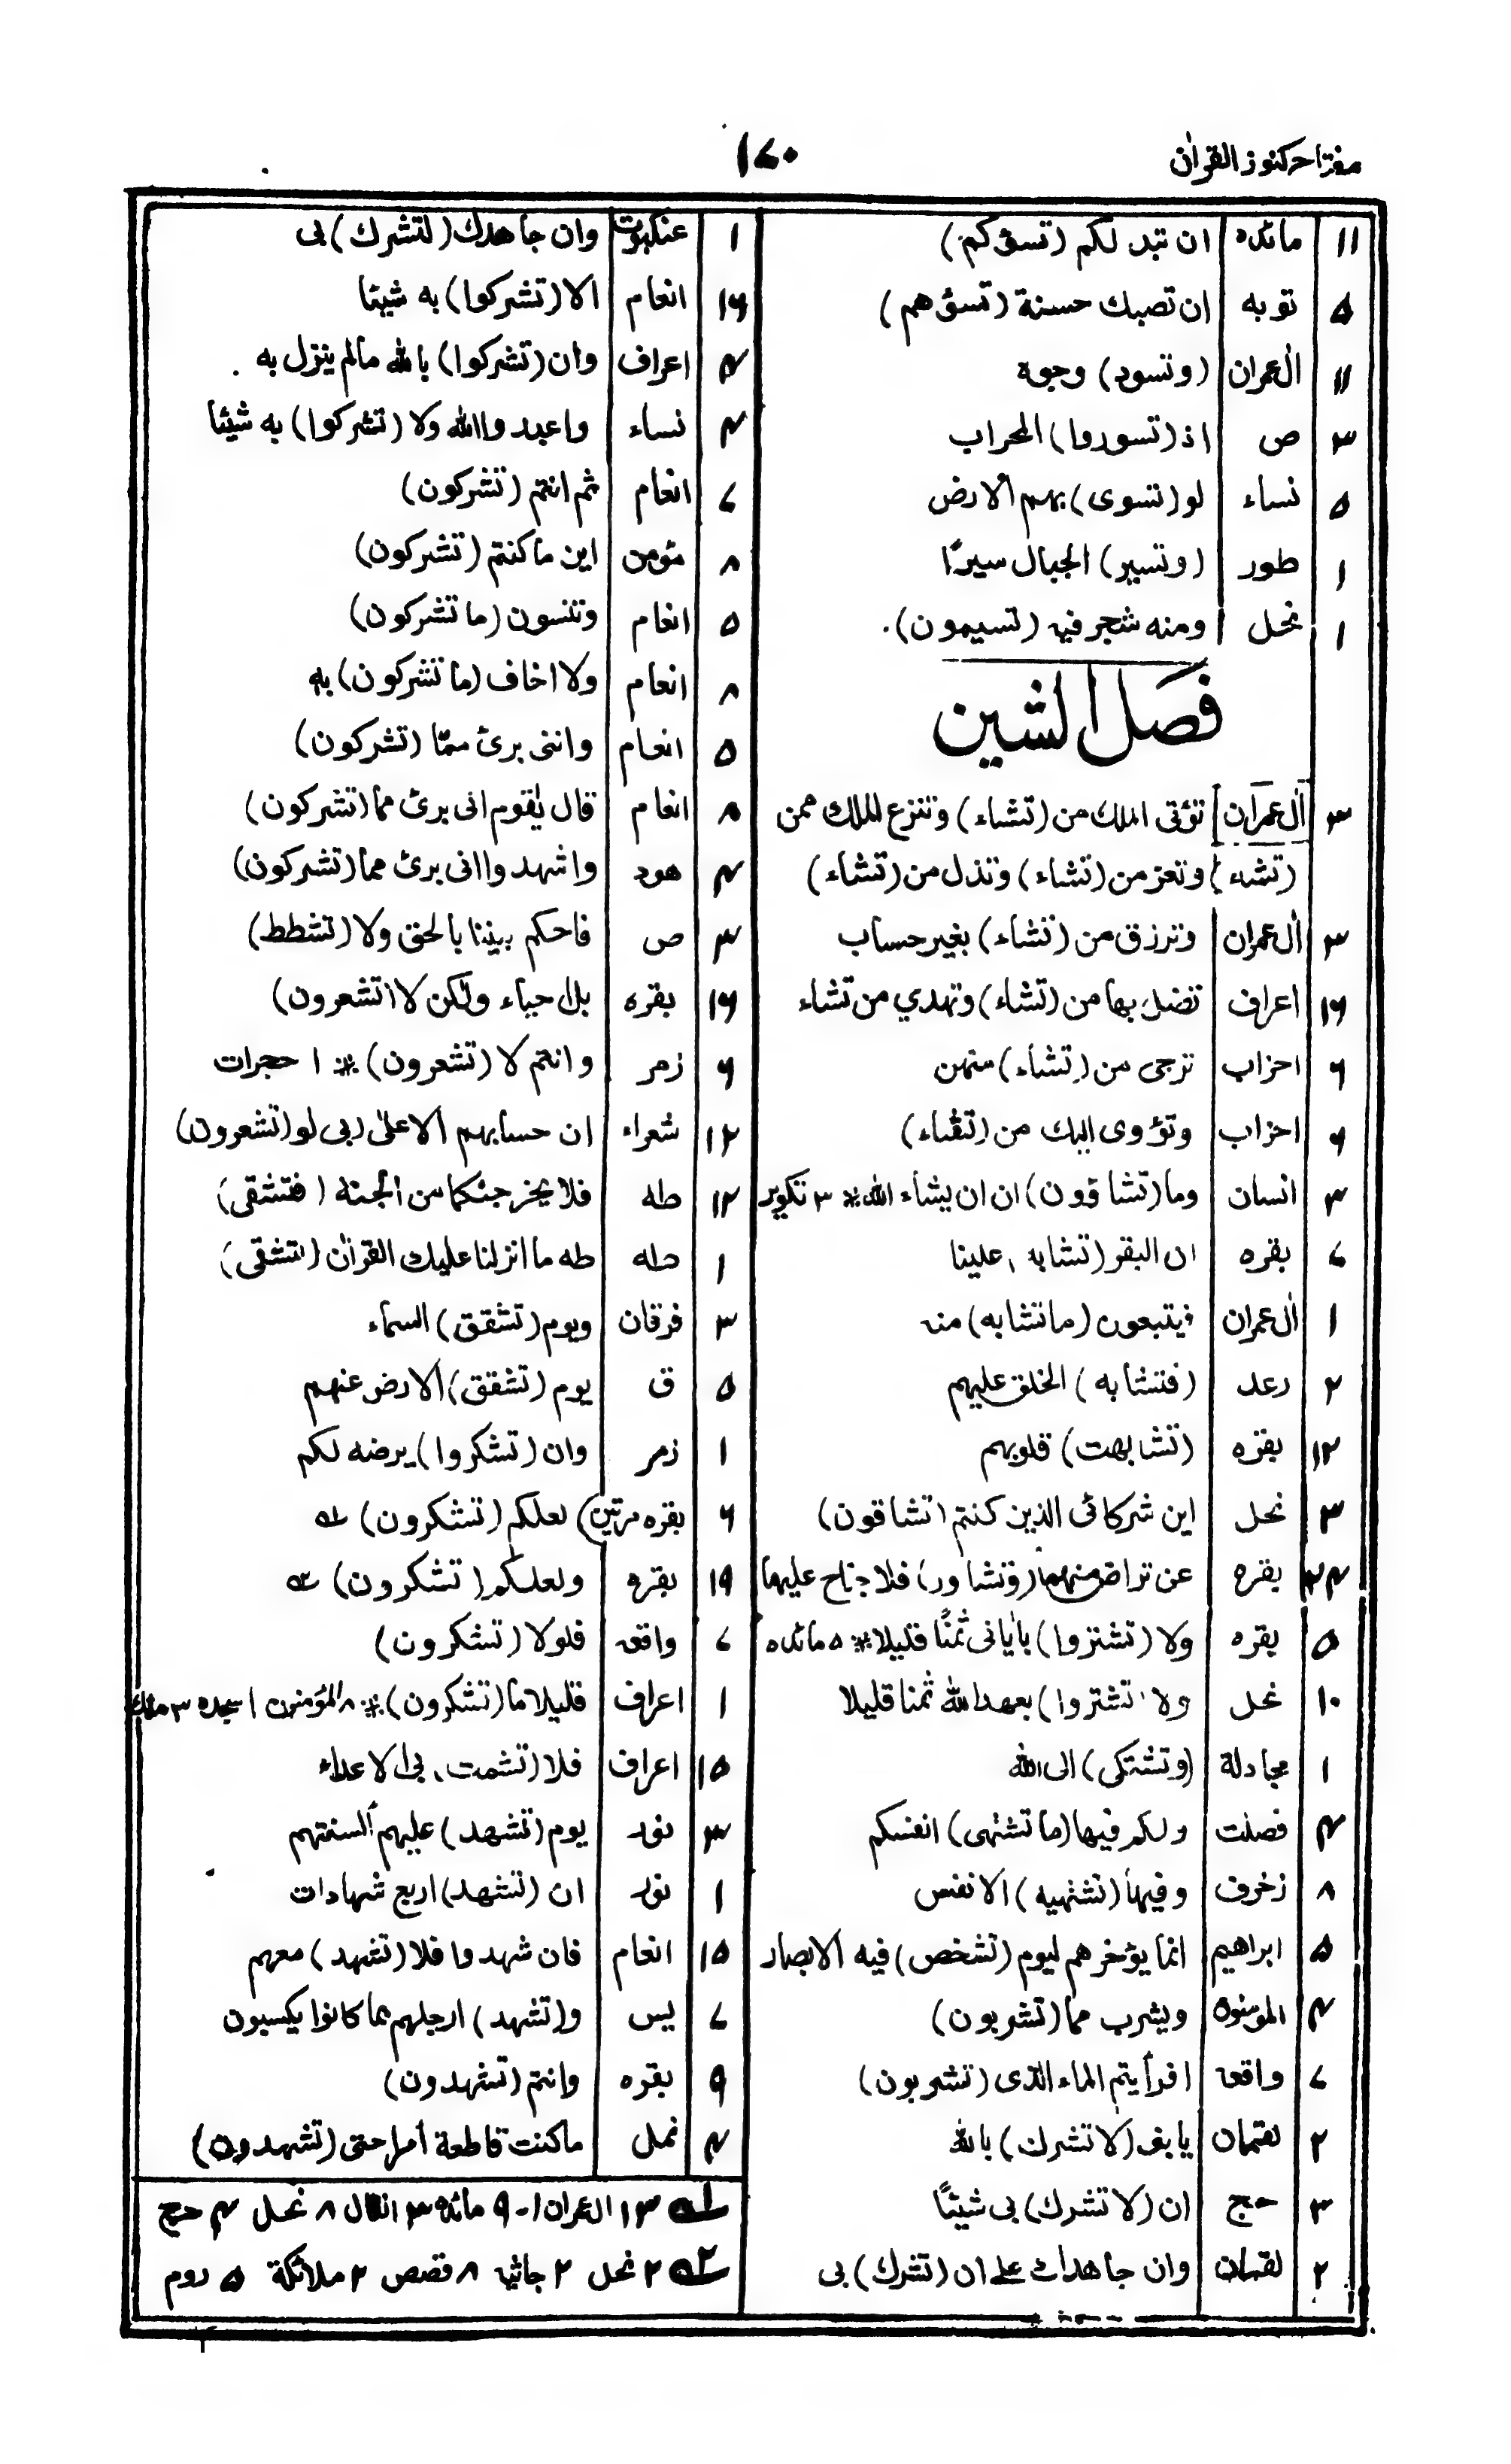 مفتاح کنوز القراٰن
۱۷۰
۱۱ مائده ان تبد لکم (تسؤکم)
۵ توبه ان تصبك حسنة (تسؤهم)
۱۱ اٰل عمران (وتسود) وجوه
۳ ص اذ (تسوروا) المحراب
۵ نساء لو (تسوی) بهم الارض
۱ طور (وتسیر) الجبال سیرًا
۱ نحل ومنه شجر فیه (تسیمون).
فصل الشین
۳ اٰل عمران تؤتی الملك من (تشاء) وتنزع الملك ممن
(تشاء) وتعز من (تشاء) وتذل من (تشاء)
۳ اٰل عمران وترزق من (تشاء) بغیر حساب
۱۶ اعراف تضل بها من (تشاء) وتهدي من تشاء
۶ احزاب ترجی من (تشاء) منهن
۶ احزاب وتؤوی الیك من (تشاء)
۳ انسان وما (تشاؤون) ان ان یشاء الله * ۳ تکویر
۷ بقره ان البقر (تشابه) علینا
۱ اٰل عمران فیتبعون (ما تشابه) منه
۲ رعد (فتشابه) الخلق علیهم
۱۲ بقره (تشابهت) قلوبهم
۳ نحل این شرکائی الذین کنتم (تشاقون)
۲۴ بقره عن تراض منهما (وتشاور) فلا جناح علیهما
۵ بقره ولا (تشتروا) باٰیاتی ثمنًا قلیلا * ۵ مائده
۱۰ نحل ولا (تشتروا) بعهد الله ثمنا قلیلا
۱ مجادلة (وتشتکی) الی الله
۴ فصلت ولکم فیها (ما تشتهی) انفسکم
۸ زخرف وفیها (تشتهیه) الانفس
۵ ابراهیم انما یؤخرهم لیوم (تشخص) فیه الابصار
۴ المومنون ویشرب مما (تشربون)
۷ واقعه افرأیتم الماء الذی (تشربون)
۲ لقمان یا بنی (لا تشرك) بالله
۳ حج ان (لا تشرك) بی شیئًا
۲ لقمان وان جاهداك علی ان (تشرك) بی
۱ عنکبوت وان جاهدك (لتشرك) بی
۱۶ انعام الا (تشرکوا) به شیئا
۴ اعراف وان (تشرکوا) بالله مالم ینزل به
۴ نساء واعبدوا الله ولا (تشرکوا) به شیئا
۷ انعام ثم انتم (تشرکون)
۸ مؤمن این ما کنتم (تشرکون)
۵ انعام وتنسون (ما تشرکون)
۸ انعام ولا اخاف (ما تشرکون) به
۵ انعام واننی برئ ممّا (تشرکون)
۸ انعام قال یٰقوم انی برئ مما (تشرکون)
۴ هود واشهدوا انی برئ مما (تشرکون)
۳ ص فاحکم بیننا بالحق ولا (تشطط)
۱۶ بقره بل احیاء ولٰکن لا (تشعرون)
۶ زمر وانتم لا (تشعرون) * ۱ حجرات
۱۲ شعراء ان حسابهم الا علٰی ربی لو (تشعرون)
۱۲ طه فلا یخرجنکما من الجنة (فتشقی)
۱ طه طه ما انزلنا علیك القراٰن (لتشقی)
۳ فرقان ویوم (تشقق) السماء
۵ ق یوم (تشقق) الارض عنهم
۱ زمر وان (تشکروا) یرضه لکم
۶ بقره مرتین) لعلکم (تشکرون) ۱ه
۱۹ بقره ولعلکم (تشکرون) ۲ه
۷ واقعه فلولا (تشکرون)
۱ اعراف قلیلا ما (تشکرون) * ۸ المؤمنون ۱ سجده ۳ ملك
۱۵ اعراف فلا (تشمت) بی الاعداء
۳ نور یوم (تشهد) علیهم السنتهم
۱ نور ان (تشهد) اربع شهادات
۱۵ انعام فان شهدوا فلا (تشهد) معهم
۷ یس و(تشهد) ارجلهم بما کانوا یکسبون
۹ بقره وانتم (تشهدون)
۴ نمل ما کنت قاطعة امرا حتی (تشهدون)
۱ه ۱۳ ال عمران ۱-۹ مائده ۳ انفال ۸ نحل ۴ حج
۲ه ۲ نحل ۲ جاثیه ۸ قصص ۲ ملائکة ۵ روم